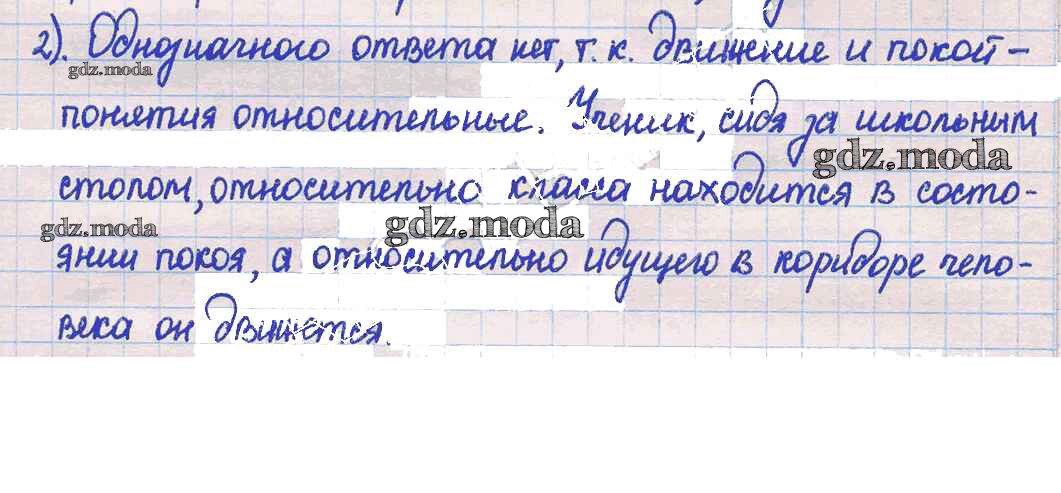 2). Однозначного ответа нет, т.к. движение и покой –
gdz.moda
понятия относительные. Ученик, сидя за школьным
gdz.moda
столом, относительно класса находится в состо-
gdz.moda gdz.moda
янии покоя, а относительно идущего в коридоре чело-
века он движется.